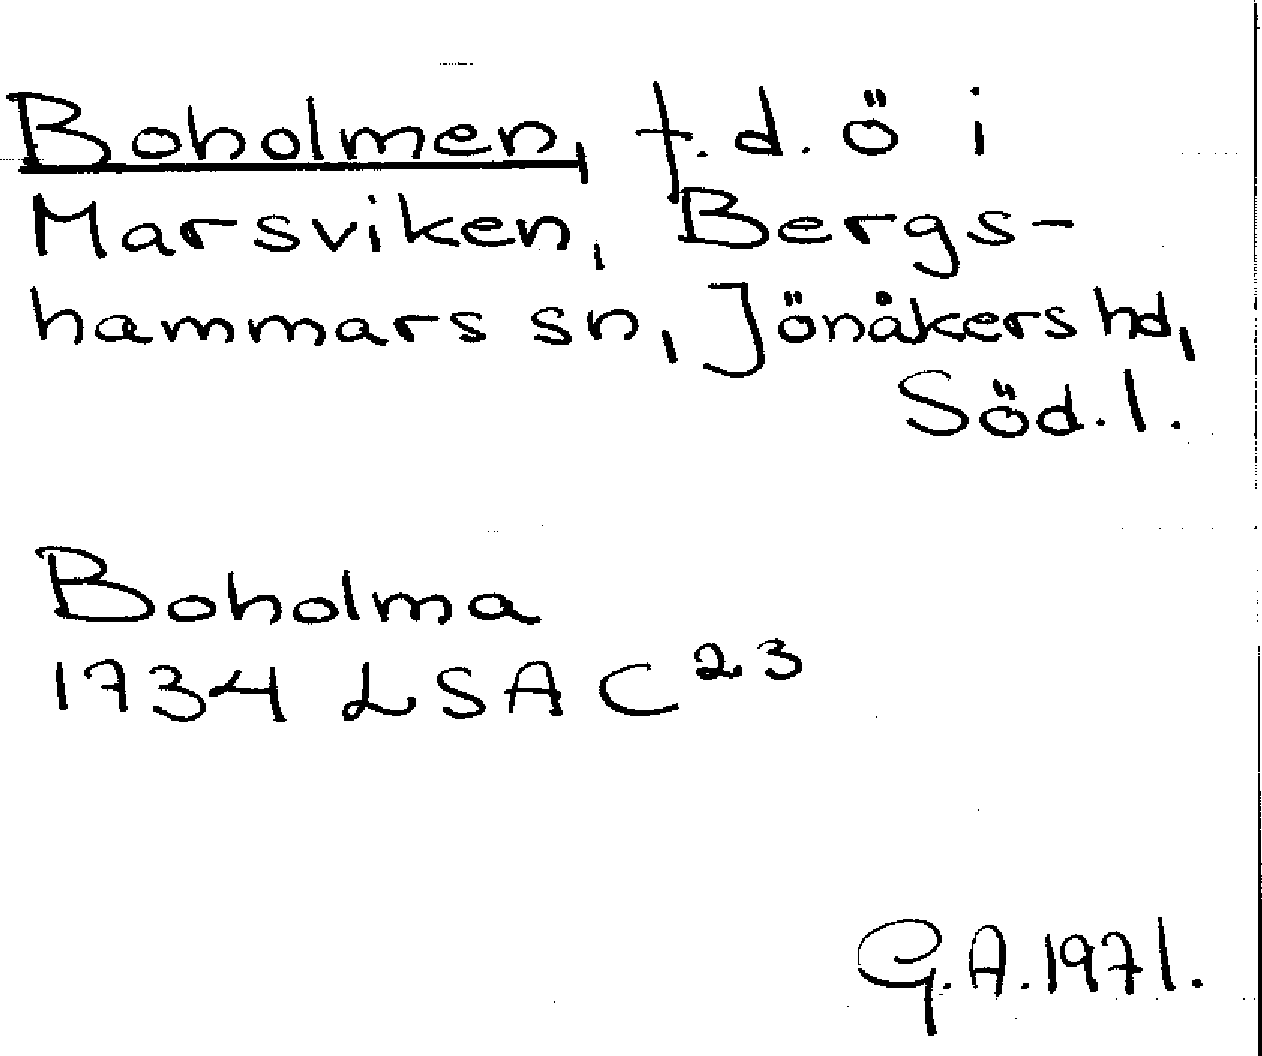 Boholmen, f.d. ö i
Marsviken, Bergs-
hammars sn, Jönåkers hd,
Söd. l.
Boholma
1734 LSA C²³
G.A. 1971.